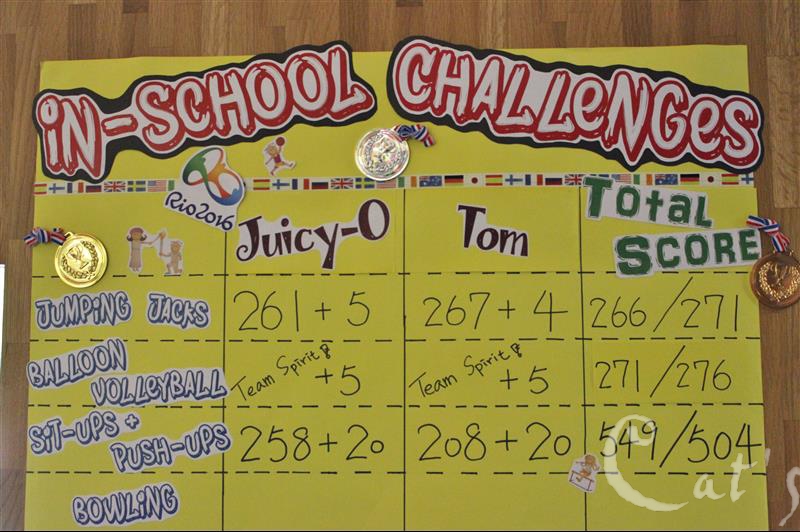 IN-SCHOOL CHALLENGES
Rio2016
Juicy-O Tom Total Score
Jumping Jacks 261 + 5 267 + 4 266/271
Balloon Volleyball Team Spirit +5 Team Spirit +5 271/276
Sit-ups + Push-ups 258+20 208+20 549/504
Bowling
Cat's